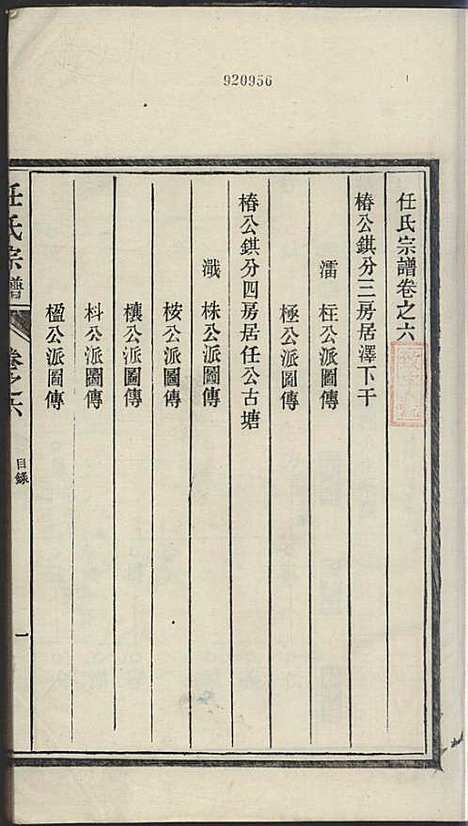 920956
任氏宗譜卷之六
椿公鉷分三房居澤下干
澑 枉公派圖傳
極公派圖傳
椿公鉷分四房居任公古塘
濈 株公派圖傳
桉公派圖傳
欀公派圖傳
枓公派圖傳
楹公派圖傳
任氏宗譜
卷之六
目錄
一